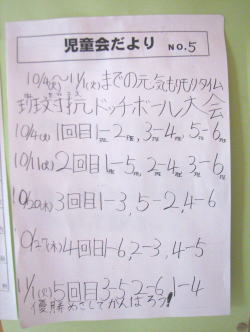 児童会だより NO.5
10/4(火)〜11/1(火)までの元気もりもりタイム
対抗ドッチボール大会
10/4(火)1回目1-2, 3-4, 5-6
10/11(火)2回目1-5, 2-4, 3-6
10/20(木)3回目1-3, 5-2, 4-6
10/27(木)4回目1-6, 2-3, 4-5
11/1(火)5回目3-5, 2-6, 1-4
優勝めざしてがんばろう!